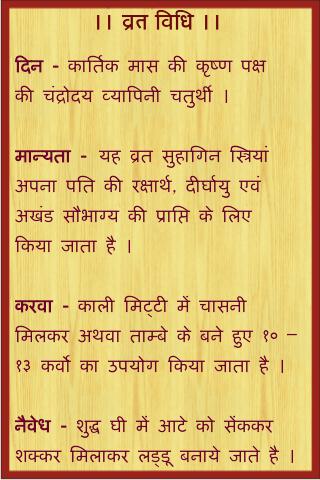 ।। व्रत विधि ।।
दिन - कार्तिक मास की कृष्ण पक्ष
की चंद्रोदय व्यापिनी चतुर्थी ।
मान्यता - यह व्रत सुहागिन स्त्रियां
अपना पति की रक्षार्थ, दीर्घायु एवं
अखंड सौभाग्य की प्राप्ति के लिए
किया जाता है ।
करवा - काली मिट्टी में चासनी
मिलकर अथवा ताम्बे के बने हुए १० –
१३ कर्वो का उपयोग किया जाता है ।
नैवेध - शुद्ध घी में आटे को सेंककर
शक्कर मिलाकर लड्डू बनाये जाते है ।